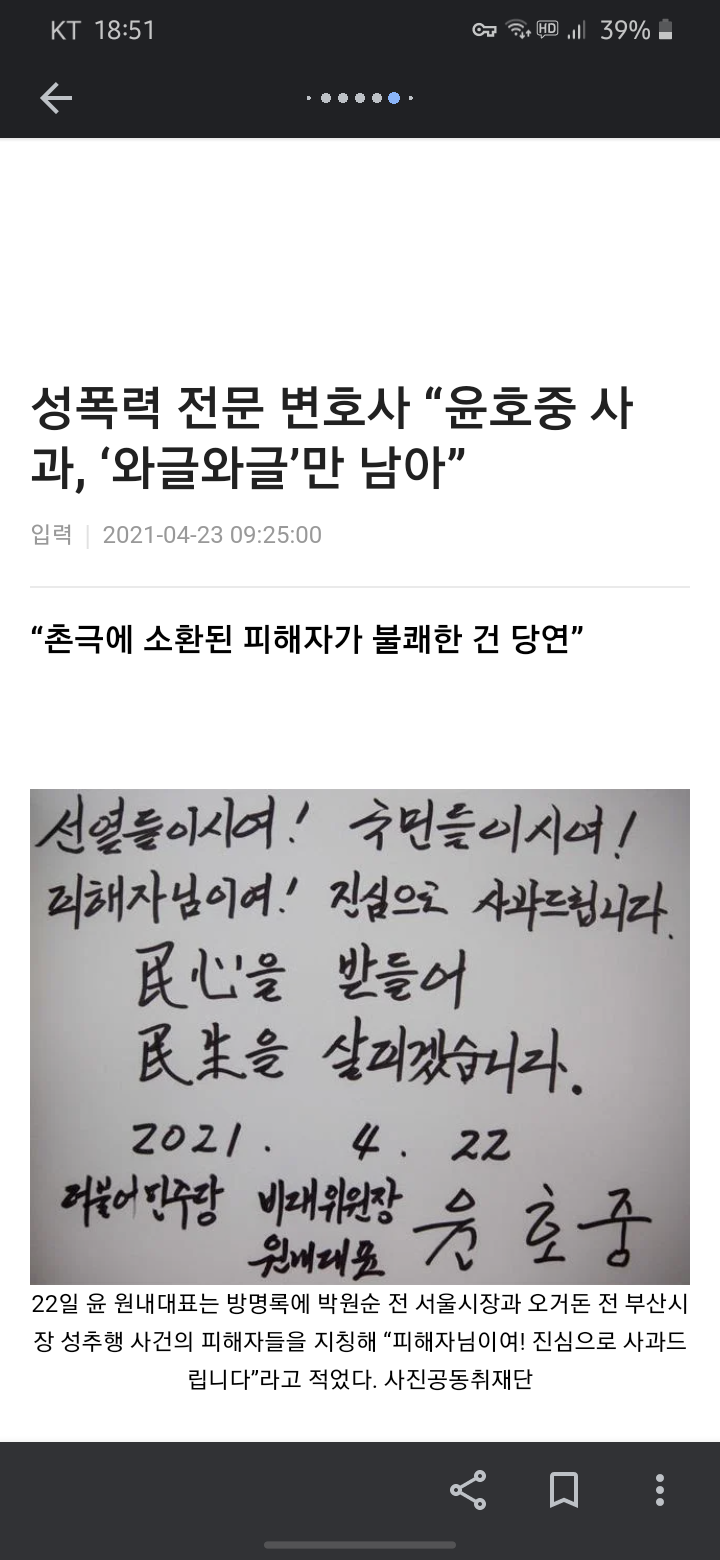 KT 18:51
HD 39%
성폭력 전문 변호사 “윤호중 사
과, ‘와글와글’만 남아”
입력 | 2021-04-23 09:25:00
“촌극에 소환된 피해자가 불쾌한 건 당연”
선열들이시여! 국민들이시여!
피해자님이여! 진심으로 사과드립니다.
民心을 받들어
民生을 살피겠습니다.
2021. 4. 22
더불어민주당 비대위원장
원내대표 윤호중
22일 윤 원내대표는 방명록에 박원순 전 서울시장과 오거돈 전 부산시
장 성추행 사건의 피해자들을 지칭해 “피해자님이여! 진심으로 사과드
립니다”라고 적었다. 사진공동취재단